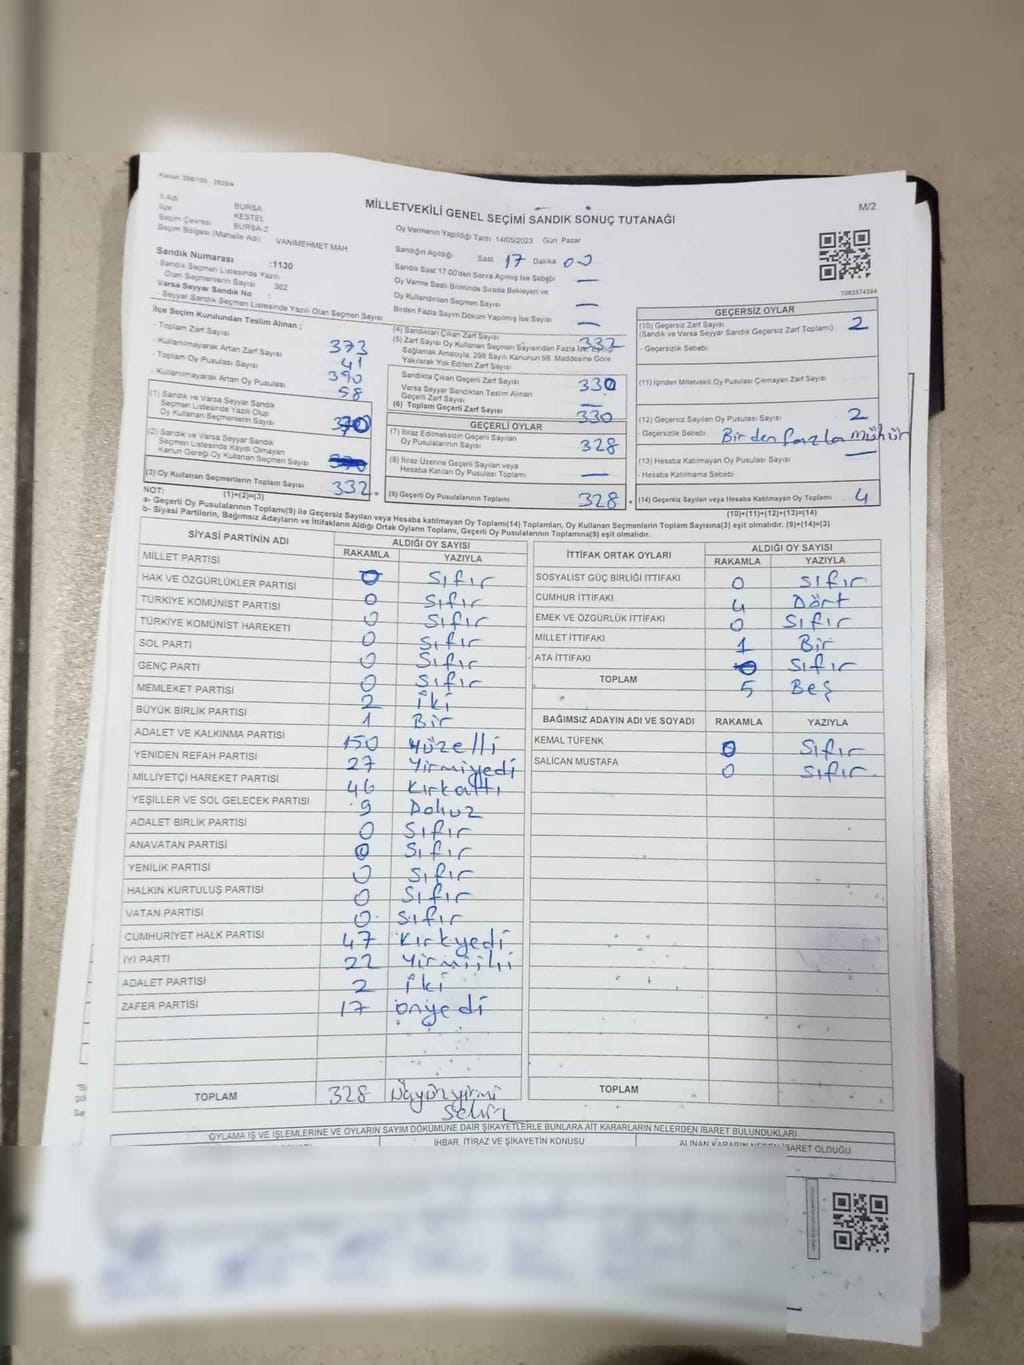 MİLLETVEKİLİ GENEL SEÇİMİ SANDIK SONUÇ TUTANAĞI
M/2
İl Adı BURSA
İlçe KESTEL
Seçim Çevresi BURSA-2
Seçim Bölgesi (Mahalle Adı) VANIMEHMET MAH
Sandık Numarası :1130
Sandık Seçmen Listesinde Yazılı
Olan Seçmenlerin Sayısı 362
Varsa Seyyar Sandık No :
- Seyyar Sandık Seçmen Listesinde Yazılı Olan Seçmen Sayısı
Oy Vermenin Yapıldığı Tarih 14/05/2023 Gün Pazar
Sandığın Açıldığı Saat 17 Dakika 00
Sandık Saat 17.00'den Sonra Açılmış İse Sebebi —
Oy Verme Saati Bitiminde Sırada Bekleyen ve
Oy Kullandırılan Seçmen Sayısı —
Birden Fazla Sayım Döküm Yapılmış İse Sayısı —
İlçe Seçim Kurulundan Teslim Alınan ;
- Toplam Zarf Sayısı 373
- Kullanılmayarak Artan Zarf Sayısı 41
- Toplam Oy Pusulası Sayısı 390
- Kullanılmayarak Artan Oy Pusulası 58
(1) Sandık ve Varsa Seyyar Sandık
Seçmen Listesinde Yazılı Olup
Oy Kullanan Seçmenlerin Sayısı
(2) Sandık ve Varsa Seyyar Sandık
Seçmen Listesinde Kayıtlı Olmayan
Kanun Gereği Oy Kullanan Seçmen Sayısı
(3) Oy Kullanan Seçmenlerin Toplam Sayısı 332 =
(1)+(2)=(3)
(4) Sandıktan Çıkan Zarf Sayısı 332
(5) Zarf Sayısı Oy Kullanan Seçmen Sayısından Fazla İse
Sağlamak Amacıyla, 298 Sayılı Kanunun 98. Maddesine Göre
Yakılarak Yok Edilen Zarf Sayısı
Sandıkta Çıkan Geçerli Zarf Sayısı 330
Varsa Seyyar Sandıktan Teslim Alınan
Geçerli Zarf Sayısı
(6) Toplam Geçerli Zarf Sayısı 330
GEÇERLİ OYLAR
(7) İtiraz Edilmeksizin Geçerli Sayılan
Oy Pusulalarının Sayısı 328
(8) İtiraz Üzerine Geçerli Sayılan veya
Hesaba Katılan Oy Pusulası Toplamı —
(9) Geçerli Oy Pusulalarının Toplamı 328 +
GEÇERSİZ OYLAR
(10) Geçersiz Zarf Sayısı 2
(Sandık ve Varsa Seyyar Sandık Geçersiz Zarf Toplamı)
- Geçersizlik Sebebi
(11) İçinden Milletvekili Oy Pusulası Çıkmayan Zarf Sayısı
(12) Geçersiz Sayılan Oy Pusulası Sayısı 2
- Geçersizlik Sebebi Birden fazla mühür
(13) Hesaba Katılmayan Oy Pusulası Sayısı —
- Hesaba Katılmama Sebebi
(14) Geçersiz Sayılan veya Hesaba Katılmayan Oy Toplamı 4
(10)+(11)+(12)+(13)=(14)
NOT:
a- Geçerli Oy Pusulalarının Toplamı(9) ile Geçersiz Sayılan veya Hesaba katılmayan Oy Toplamı(14) Toplamları, Oy Kullanan Seçmenlerin Toplam Sayısına(3) eşit olmalıdır. (9)+(14)=(3)
b- Siyasi Partilerin, Bağımsız Adayların ve İttifakların Aldığı Ortak Oyların Toplamı, Geçerli Oy Pusulalarının Toplamına(9) eşit olmalıdır.
SİYASİ PARTİNİN ADI ALDIĞI OY SAYISI
RAKAMLA YAZIYLA
MİLLET PARTİSİ 0 Sıfır
HAK VE ÖZGÜRLÜKLER PARTİSİ 0 Sıfır
TÜRKİYE KOMÜNİST PARTİSİ 0 Sıfır
TÜRKİYE KOMÜNİST HAREKETİ 0 Sıfır
SOL PARTİ 0 Sıfır
GENÇ PARTİ 0 Sıfır
MEMLEKET PARTİSİ 2 İki
BÜYÜK BİRLİK PARTİSİ 1 Bir
ADALET VE KALKINMA PARTİSİ 150 Yüzelli
YENİDEN REFAH PARTİSİ 27 Yirmiyedi
MİLLİYETÇİ HAREKET PARTİSİ 46 Kırkaltı
YEŞİLLER VE SOL GELECEK PARTİSİ 9 Dokuz
ADALET BİRLİK PARTİSİ 0 Sıfır
ANAVATAN PARTİSİ 0 Sıfır
YENİLİK PARTİSİ 0 Sıfır
HALKIN KURTULUŞ PARTİSİ 0 Sıfır
VATAN PARTİSİ 0 Sıfır
CUMHURİYET HALK PARTİSİ 47 Kırkyedi
İYİ PARTİ 22 Yirmiiki
ADALET PARTİSİ 2 İki
ZAFER PARTİSİ 17 Onyedi
TOPLAM 328 Üçyüzyirmi
Sekiz
İTTİFAK ORTAK OYLARI ALDIĞI OY SAYISI
RAKAMLA YAZIYLA
SOSYALİST GÜÇ BİRLİĞİ İTTİFAKI 0 Sıfır
CUMHUR İTTİFAKI 4 Dört
EMEK VE ÖZGÜRLÜK İTTİFAKI 0 Sıfır
MİLLET İTTİFAKI 1 Bir
ATA İTTİFAKI 0 Sıfır
TOPLAM 5 Beş
BAĞIMSIZ ADAYIN ADI VE SOYADI RAKAMLA YAZIYLA
KEMAL TÜFENK 0 Sıfır
SALİCAN MUSTAFA 0 Sıfır
TOPLAM
OYLAMA İŞ VE İŞLEMLERİNE VE OYLARIN SAYIM DÖKÜMÜNE DAİR ŞİKAYETLERLE BUNLARA AİT KARARLARIN NELERDEN İBARET BULUNDUKLARI
İHBAR, İTİRAZ VE ŞİKAYETİN KONUSU
ALINAN KARARIN NEDEN İBARET OLDUĞU